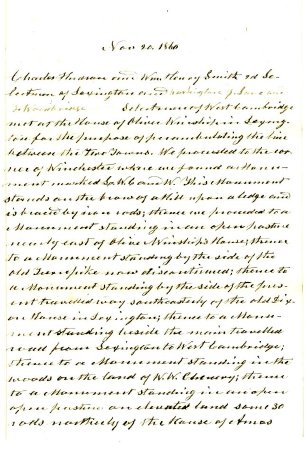 Nov 20. 1860
Charles Hudson and Wm Henry Smith 2d Se-
lectmen of Lexington and
Selectmen of West Cambridge
met at the House of Oliver Winship in Lexing-
ton for the purpose of perambulating the line
between the Two Towns. We proceeded to the cor-
ner of Winchester where we found a Monu-
ment marked L. W. C. and W. This Monument
stands on the brow of a hill upon a ledge and
is braced by iron rods; thence we proceeded to
a Monument standing in an open pasture
nearly east of Oliver Winship's House; thence
to a Monument standing by the side of the
old Turnpike now discontinued; thence to
a Monument standing by the side of the pres-
ent travelled way southeastely of the old Dix-
on House in Lexington; thence to a Monu-
ment standing beside the main travelled
road from Lexington to West Cambridge;
thence to a Monument standing in the
woods on the land of W. W. Chenery; thence
to a Monument standing in an open
open pasture on elevated land some 30
rods northely of the House of Amos